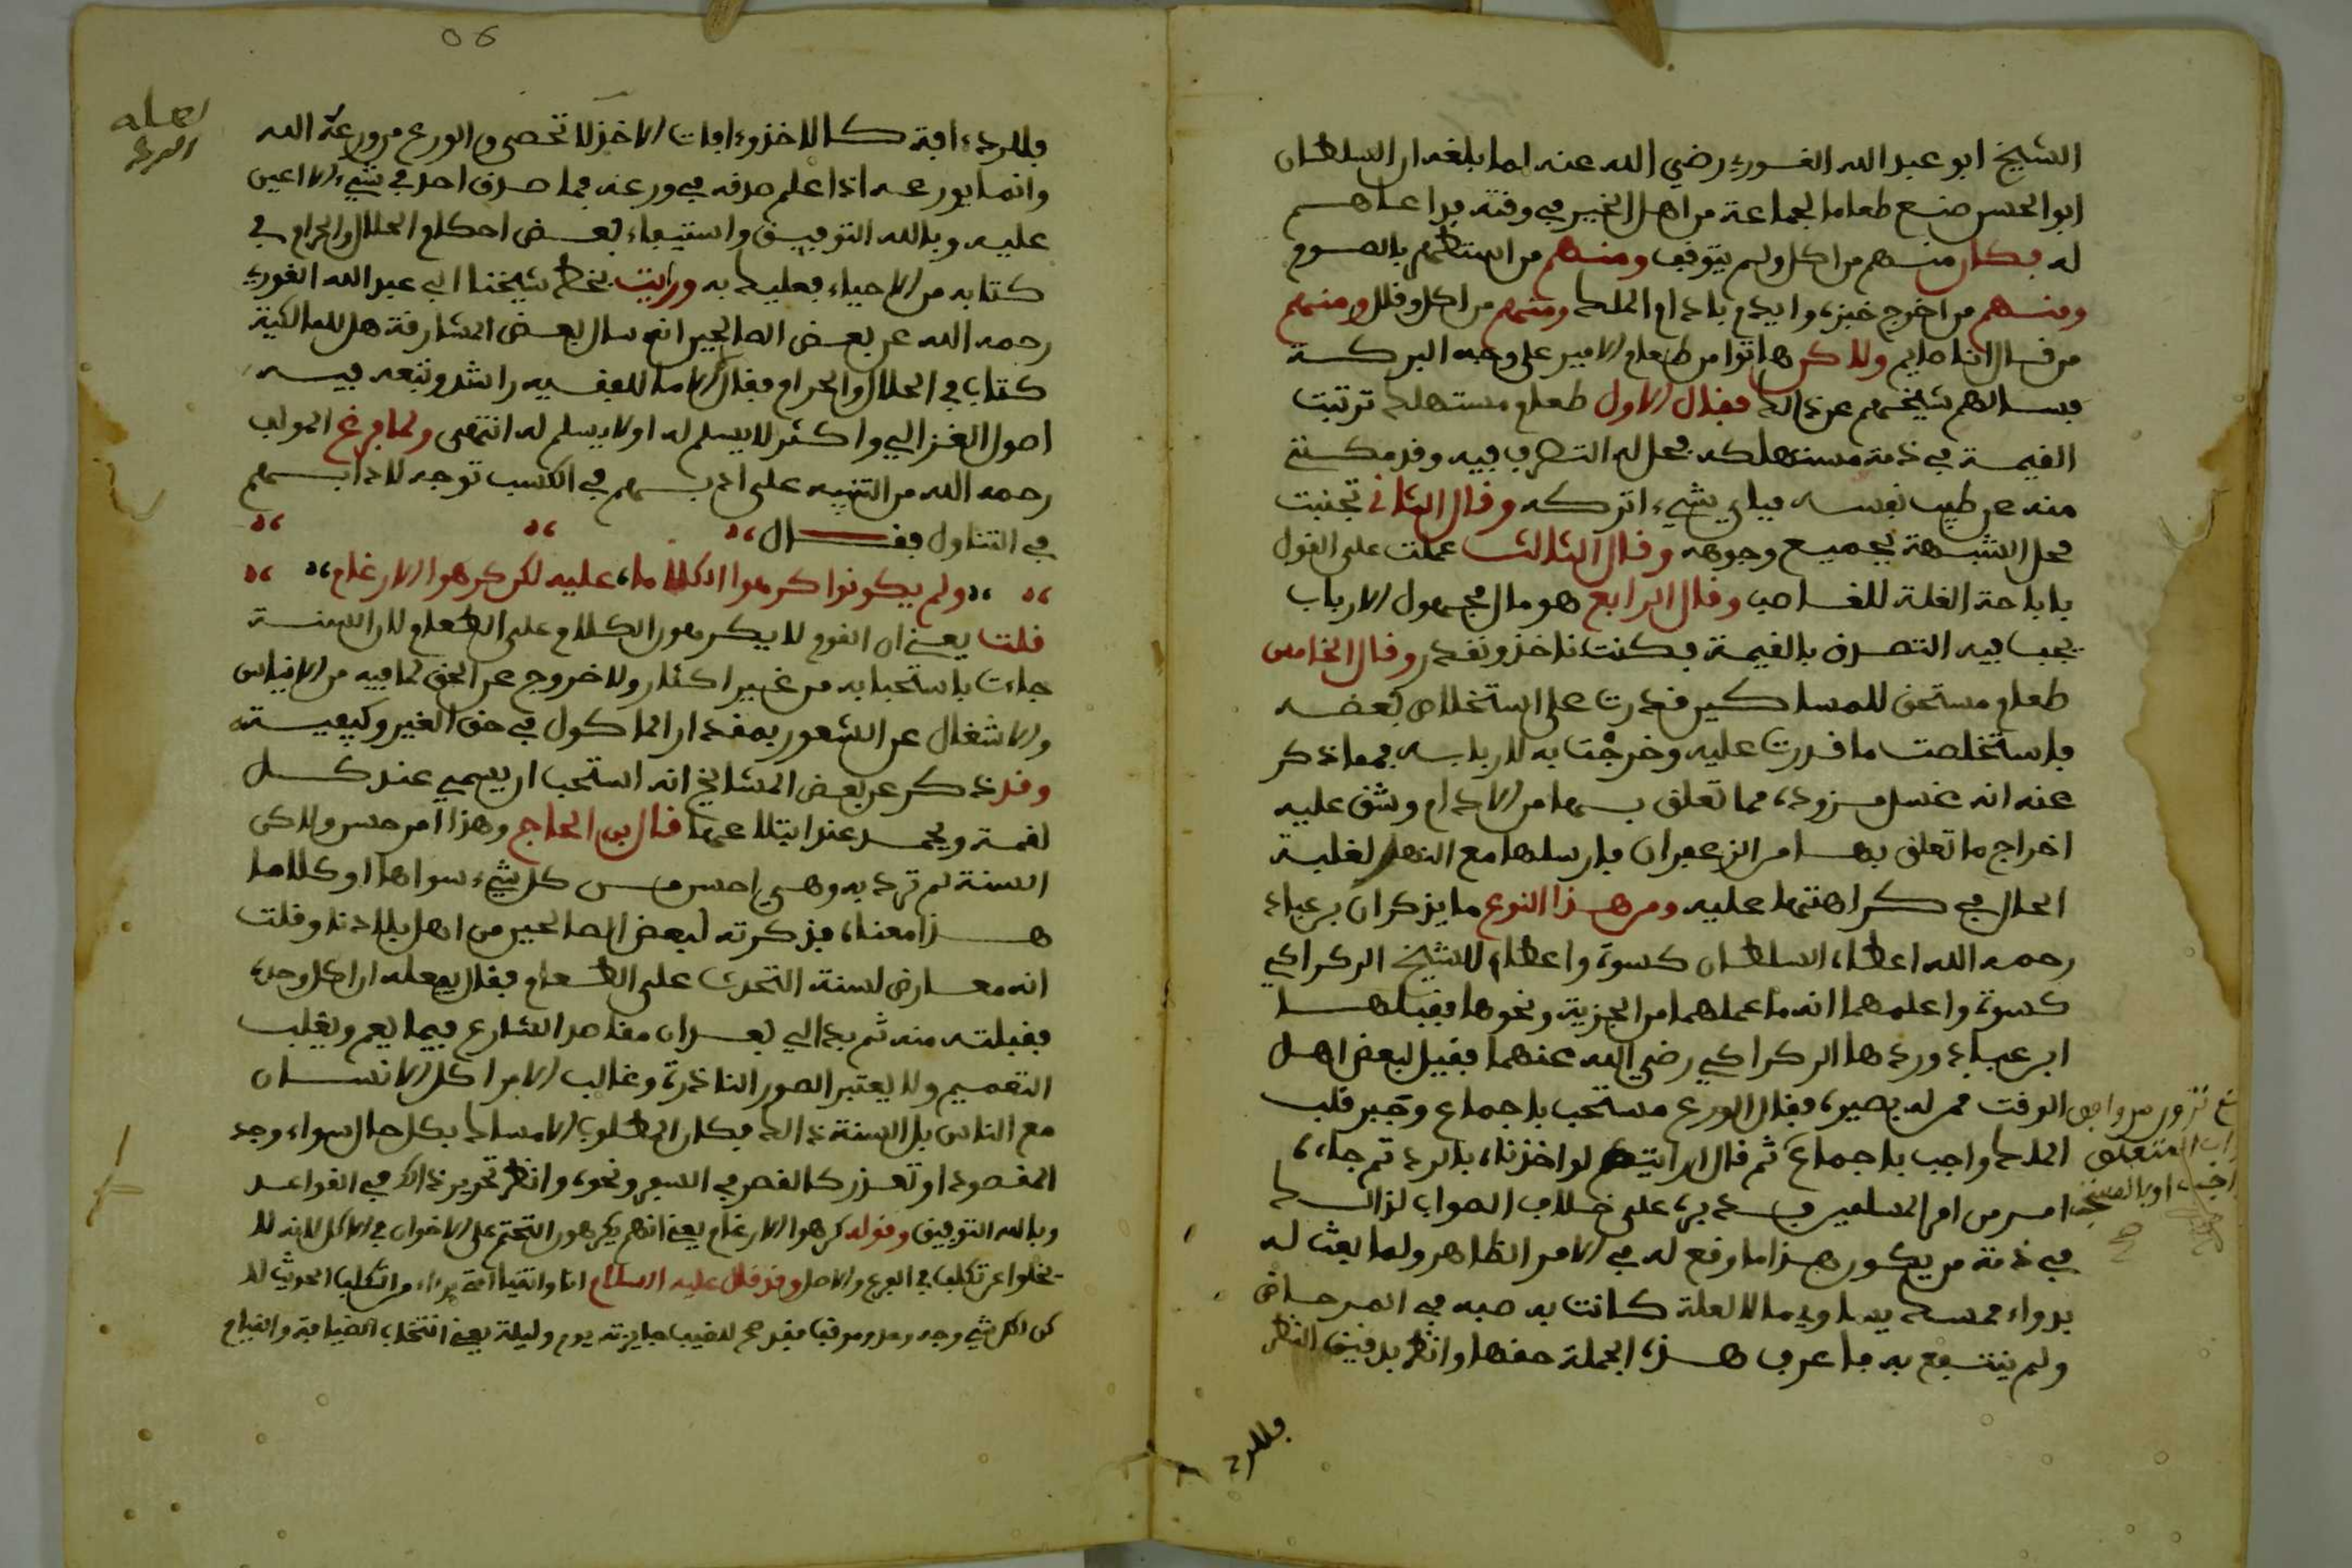 الشيخ ابو عبد الله القوري رضي الله عنه لما بلغه ان السلطان
ابو الحسن صنع طعاما لجماعة من اهل الخير في وقته فدعاهم
له فكان منهم من اكل ولم يتوقف ومنهم من استظهر بالصوم
ومنهم من اخرج خبزه وايدم بادام الملك ومنهم من اكل وقلل ومنهم
من قال انا صايم ولاكن هاتوا من طعام الامير على وجه البركة
فسالهم شيخهم عن ذالك فقال الاول طعام مستهلك ترتبت
القيمة في ذمة مستهلكه يحل له التصرف فيه وقد مكنني
منه عن طيب نفسه فباي شيء اتركه وقال الثاني تجنبت
محل الشبهة بجميع وجوهه وقال الثالث عملت على القول
باباحة الغلة للغاصب وقال الرابع هو مال مجهول الارباب
يجب فيه التصرف بالقيمة فكنت ناخذ ونقدر وقال الخامس
طعام مستحق للمساكين قدرت على استخلاص بعضه
فاستخلصت ما قدرت عليه وخرجت به لاربابه فمما ذكر
عنه انه غسل مزوده مما تعلق بها من الادام وشق عليه
اخراج ما تعلق بها من الزعفران فارسلها مع النهر لغلبة
الحال في كراهتها عليه ومن هذا النوع ما يذكر ان بن عباد
رحمه الله اعطاه السلطان كسوة واعطا للشيخ الركراكي
كسوة واعلمهما انه ما عملهما من الجزية ونحوها فقبلها
ابن عباد وردها الركراكي رضي الله عنهما فقيل لبعض اهل
الوقت ممن له بصيرة فقال الورع مستحب باجماع وجبر قلب
الملك واجب باجماع ثم قال ارايتم لو اخذناه بالرد ثم جاءه
امر من امر المسلمين فسد يره على خلاف الصواب لذالك
في ذمة من يكون هذا ما وقع له في الامر الظاهر ولما بعث له
بدواء مسك يساوي مالا لعلة كانت به صبه في المرحاض
ولم ينتفع به فاعرف هذه الجملة حقها وانظر بدقيق النظر
فللرد
06
فللرد ءافة كالاخذ وءافات الاخذ لا تحصى والورع من ورعه الله
وانما يورعه اذا علم صدقه في ورعه فما صدق احد في شيء الا اعين
عليه وبالله التوفيق واستيفاء بعض احكام الحلال والحرام في
كتابه من الاحياء فعليك به ورايت بخط شيخنا ابي عبد الله القوري
رحمه الله عن بعض الصالحين انه سال بعض المشارقة هل للمالكية
كتاب في الحلال والحرام فقال لا ما للفقيه راشد وتبعه فيه
اصول الغزالي واكثر لا يسلم له او لا يسلم له انتهى ولما فرغ المولف
رحمه الله من التنبيه على ادبهم في الكسب توجه لادابهم
في التناول فقال
ولم يكونوا كرهوا الكلاما عليه لكن كرهوا الارغام
قلت يعني ان القوم لا يكرهون الكلام على الطعام لان السنة
جاءت باستحبابه من غير اكثار ولا خروج عن الحق لما فيه من الايناس
والاشغال عن الشعور بمقدار الماكول في حق الغير وكيفيته
وقد ذكر عن بعض المشايخ انه استحب ان يسمي عند كل
لقمة ويحمد عند ابتلاعها قال بن الحاج وهذا امر حسن ولاكن
السنة لم ترد به وهي احسن من كل شيء سواها او كلاما
هذا معناه فذكرته لبعض الصالحين من اهل بلادنا وقلت
انه معارض لسنة التحدث على الطعام فقال يفعله ان اكل وحده
فقبلته منه ثم بدا لي بعد ان مقاصد الشارع فيما يعم ويغلب
التعميم ولا يعتبر الصور النادرة وغالب الامر اكل الانسان
مع الناس بل السنة ذالك فكان المطلوب الامساك بكل حال سواء وجد
المقصود او تعذر كالقصر في السفر ونحوه وانظر تحرير ذالك في القواعد
وبالله التوفيق وقوله كرهوا الارغام يعني انهم يكرهون التحتم على الاخوان في الاكل لانه لا
يخلوا عن تكلف في الفرع والاصل وقد قال عليه السلام انا واتقيا امتي براء من التكلف الحديث لا
كن لكل شيء وجه وحد وموقف فقد صح للضيف جايزته يوم وليلة يعني انتخاب الضيافة والقيام